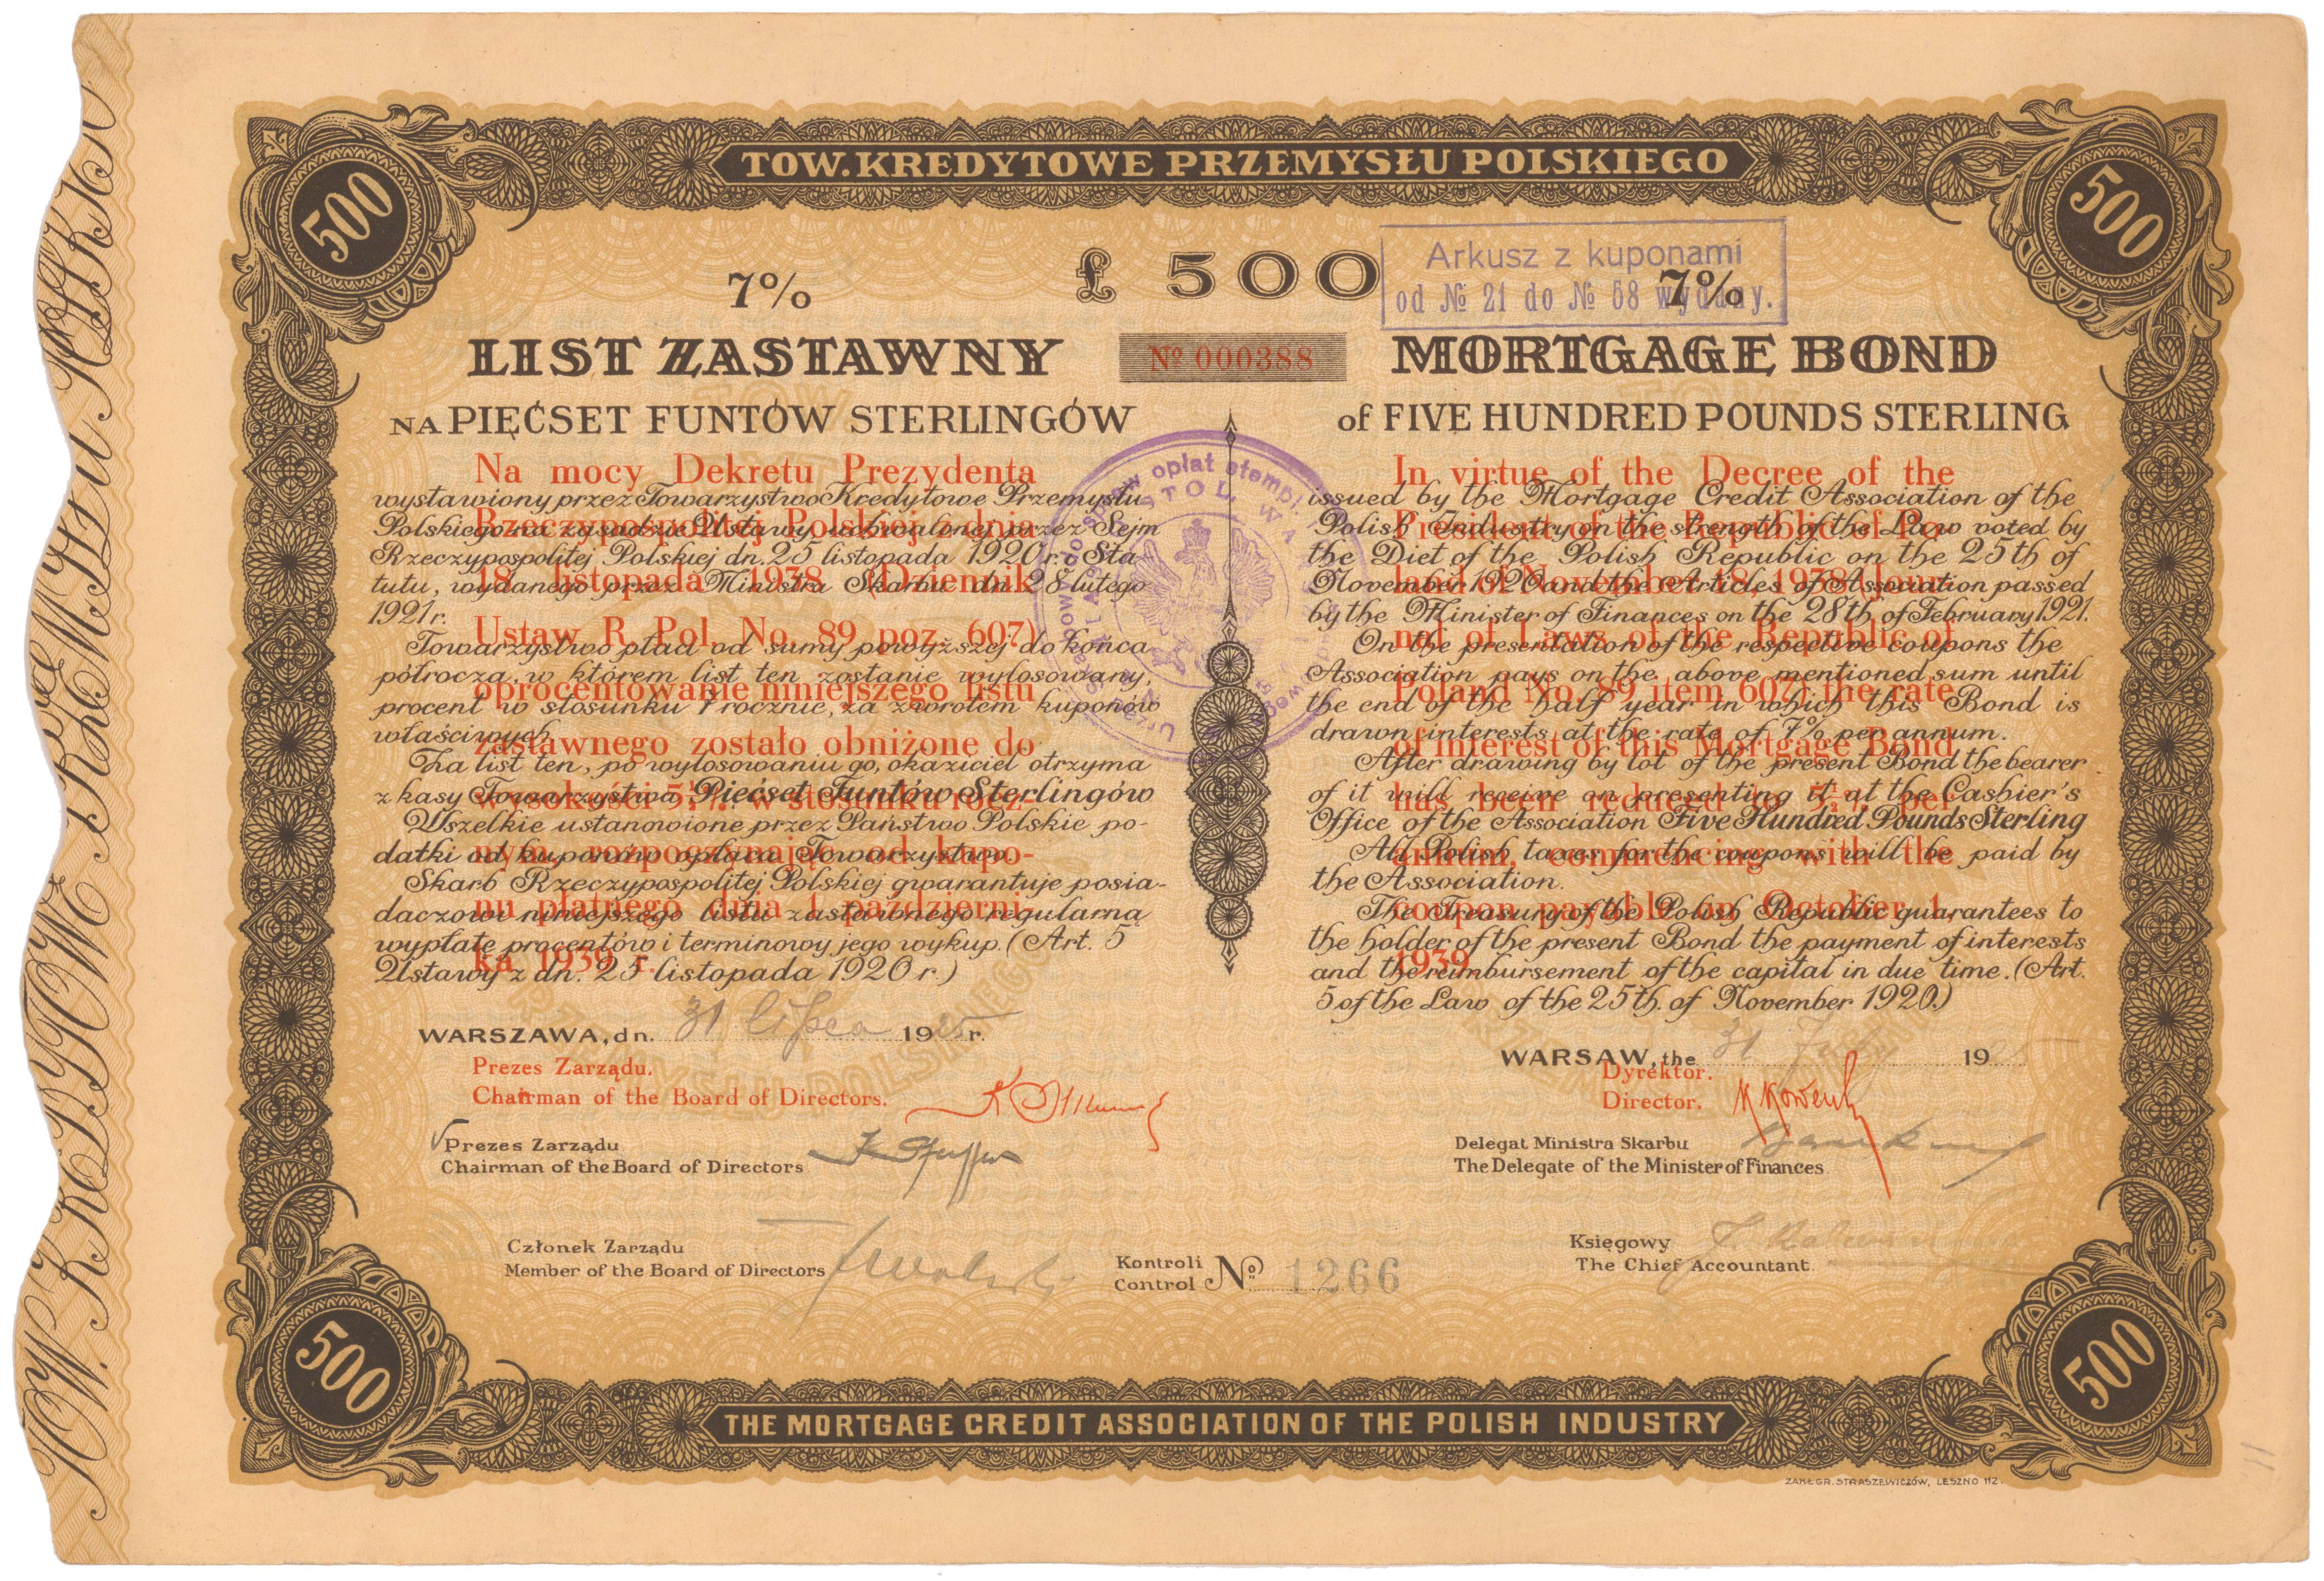 TOW. KREDYTOWE PRZEMYSŁU POLSKIEGO
500
500
£ 500
Arkusz z kuponami
od № 21 do № 58 wydany.
7%
7%
LIST ZASTAWNY
№ 000388
MORTGAGE BOND
NA PIĘĆSET FUNTÓW STERLINGÓW
of FIVE HUNDRED POUNDS STERLING
wystawiony przez Towarzystwo Kredytowe Przemysłu
Polskiego na zasadzie Ustawy, uchwalonej przez Sejm
Rzeczypospolitej Polskiej dn. 25 listopada 1920 r. i Sta
tutu, wydanego przez Ministra Skarbu dn. 28 lutego
1921 r.
Towarzystwo płaci od sumy powyższej do końca
półrocza, w którem list ten zostanie wylosowany,
procent w stosunku 7 rocznie, za zwrotem kuponów
właściwych.
Za list ten, po wylosowaniu go, okaziciel otrzyma
z kasy Towarzystwa Pięćset Funtów Sterlingów
Wszelkie ustanowione przez Państwo Polskie po-
datki od kuponów opłaca Towarzystwo.
Skarb Rzeczypospolitej Polskiej gwarantuje posia-
daczowi niniejszego listu zastawnego regularną
wypłatę procentów i terminowy jego wykup. (Art. 5
Ustawy z dn. 25 listopada 1920 r.)
Na mocy Dekretu Prezydenta
Rzeczypospolitej Polskiej z dnia
18 listopada 1938 (Dziennik
Ustaw R. Pol. No. 89 poz. 607)
oprocentowanie niniejszego listu
zastawnego zostało obniżone do
wysokości 5½% w stosunku rocz-
nym, rozpoczynając od kupo-
nu płatnego dnia 1 październi-
ka 1939 r.
issued by the Mortgage Credit Association of the
Polish Industry on the strength of the Law voted by
the Diet of the Polish Republic on the 25th of
November 1920 and the Articles of Association passed
by the Minister of Finances on the 28th of February 1921.
On the presentation of the respective coupons the
Association pays on the above mentioned sum until
the end of the half year in which this Bond is
drawn interests at the rate of 7% per annum.
After drawing by lot of the present Bond the bearer
of it will receive on presenting it at the Cashier's
Office of the Association Five Hundred Pounds Sterling
All Polish taxes for the coupons will be paid by
the Association.
The Treasury of the Polish Republic guarantees to
the holder of the present Bond the payment of interests
and the reimbursement of the capital in due time. (Art.
5 of the Law of the 25th of November 1920.)
In virtue of the Decree of the
President of the Republic of Po-
land of November 18, 1938 (Jour-
nal of Laws of the Republic of
Poland No. 89 item 607) the rate
of interest of this Mortgage Bond
has been reduced to 5½% per
annum, commencing with the
coupon payable on October 1,
1939
WARSZAWA, dn. 31 lipca 1925 r.
WARSAW, the 31 July 1925
Prezes Zarządu.
Chairman of the Board of Directors.
Dyrektor.
Director.
Prezes Zarządu
Chairman of the Board of Directors
Delegat Ministra Skarbu
The Delegate of the Minister of Finances
Członek Zarządu
Member of the Board of Directors
Kontroli
Control № 1266
Księgowy
The Chief Accountant
500
500
THE MORTGAGE CREDIT ASSOCIATION OF THE POLISH INDUSTRY
ZAKŁ. GR. STRASZEWICZÓW, LESZNO 112.
TOW. KREDYTOWE PRZEMYSŁU POLSKIEGO